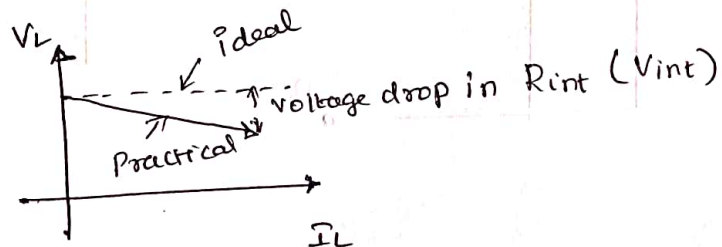 VL
ideal
voltage drop in Rint (Vint)
Practical
IL